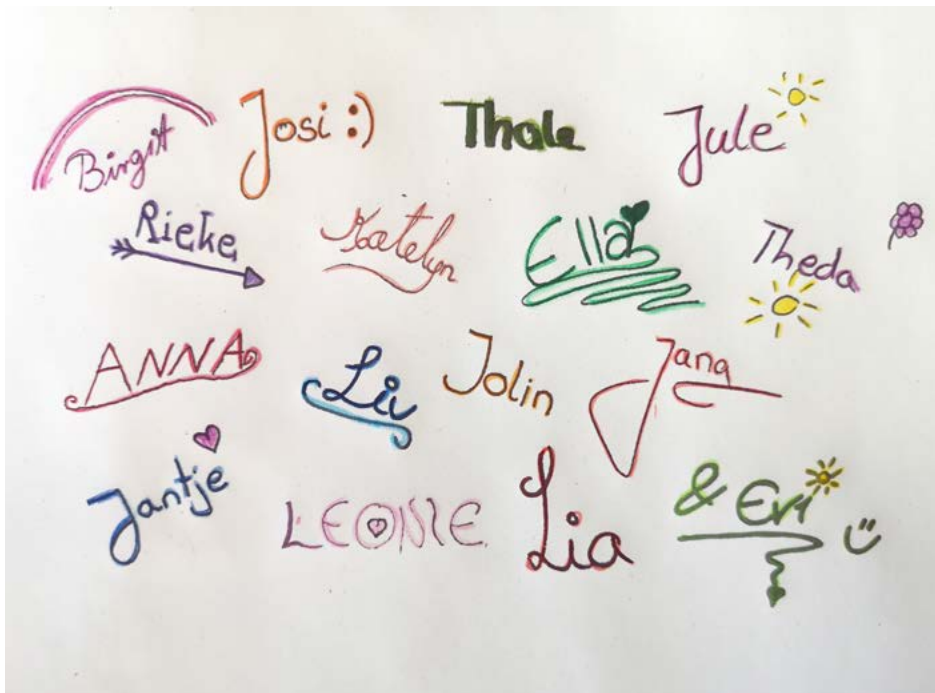 Birgit Josi :) Thale Jule
Rieke Katelyn Ella Theda
ANNA Liv Jolin Jana
Jantje LEONIE Lia & Evi